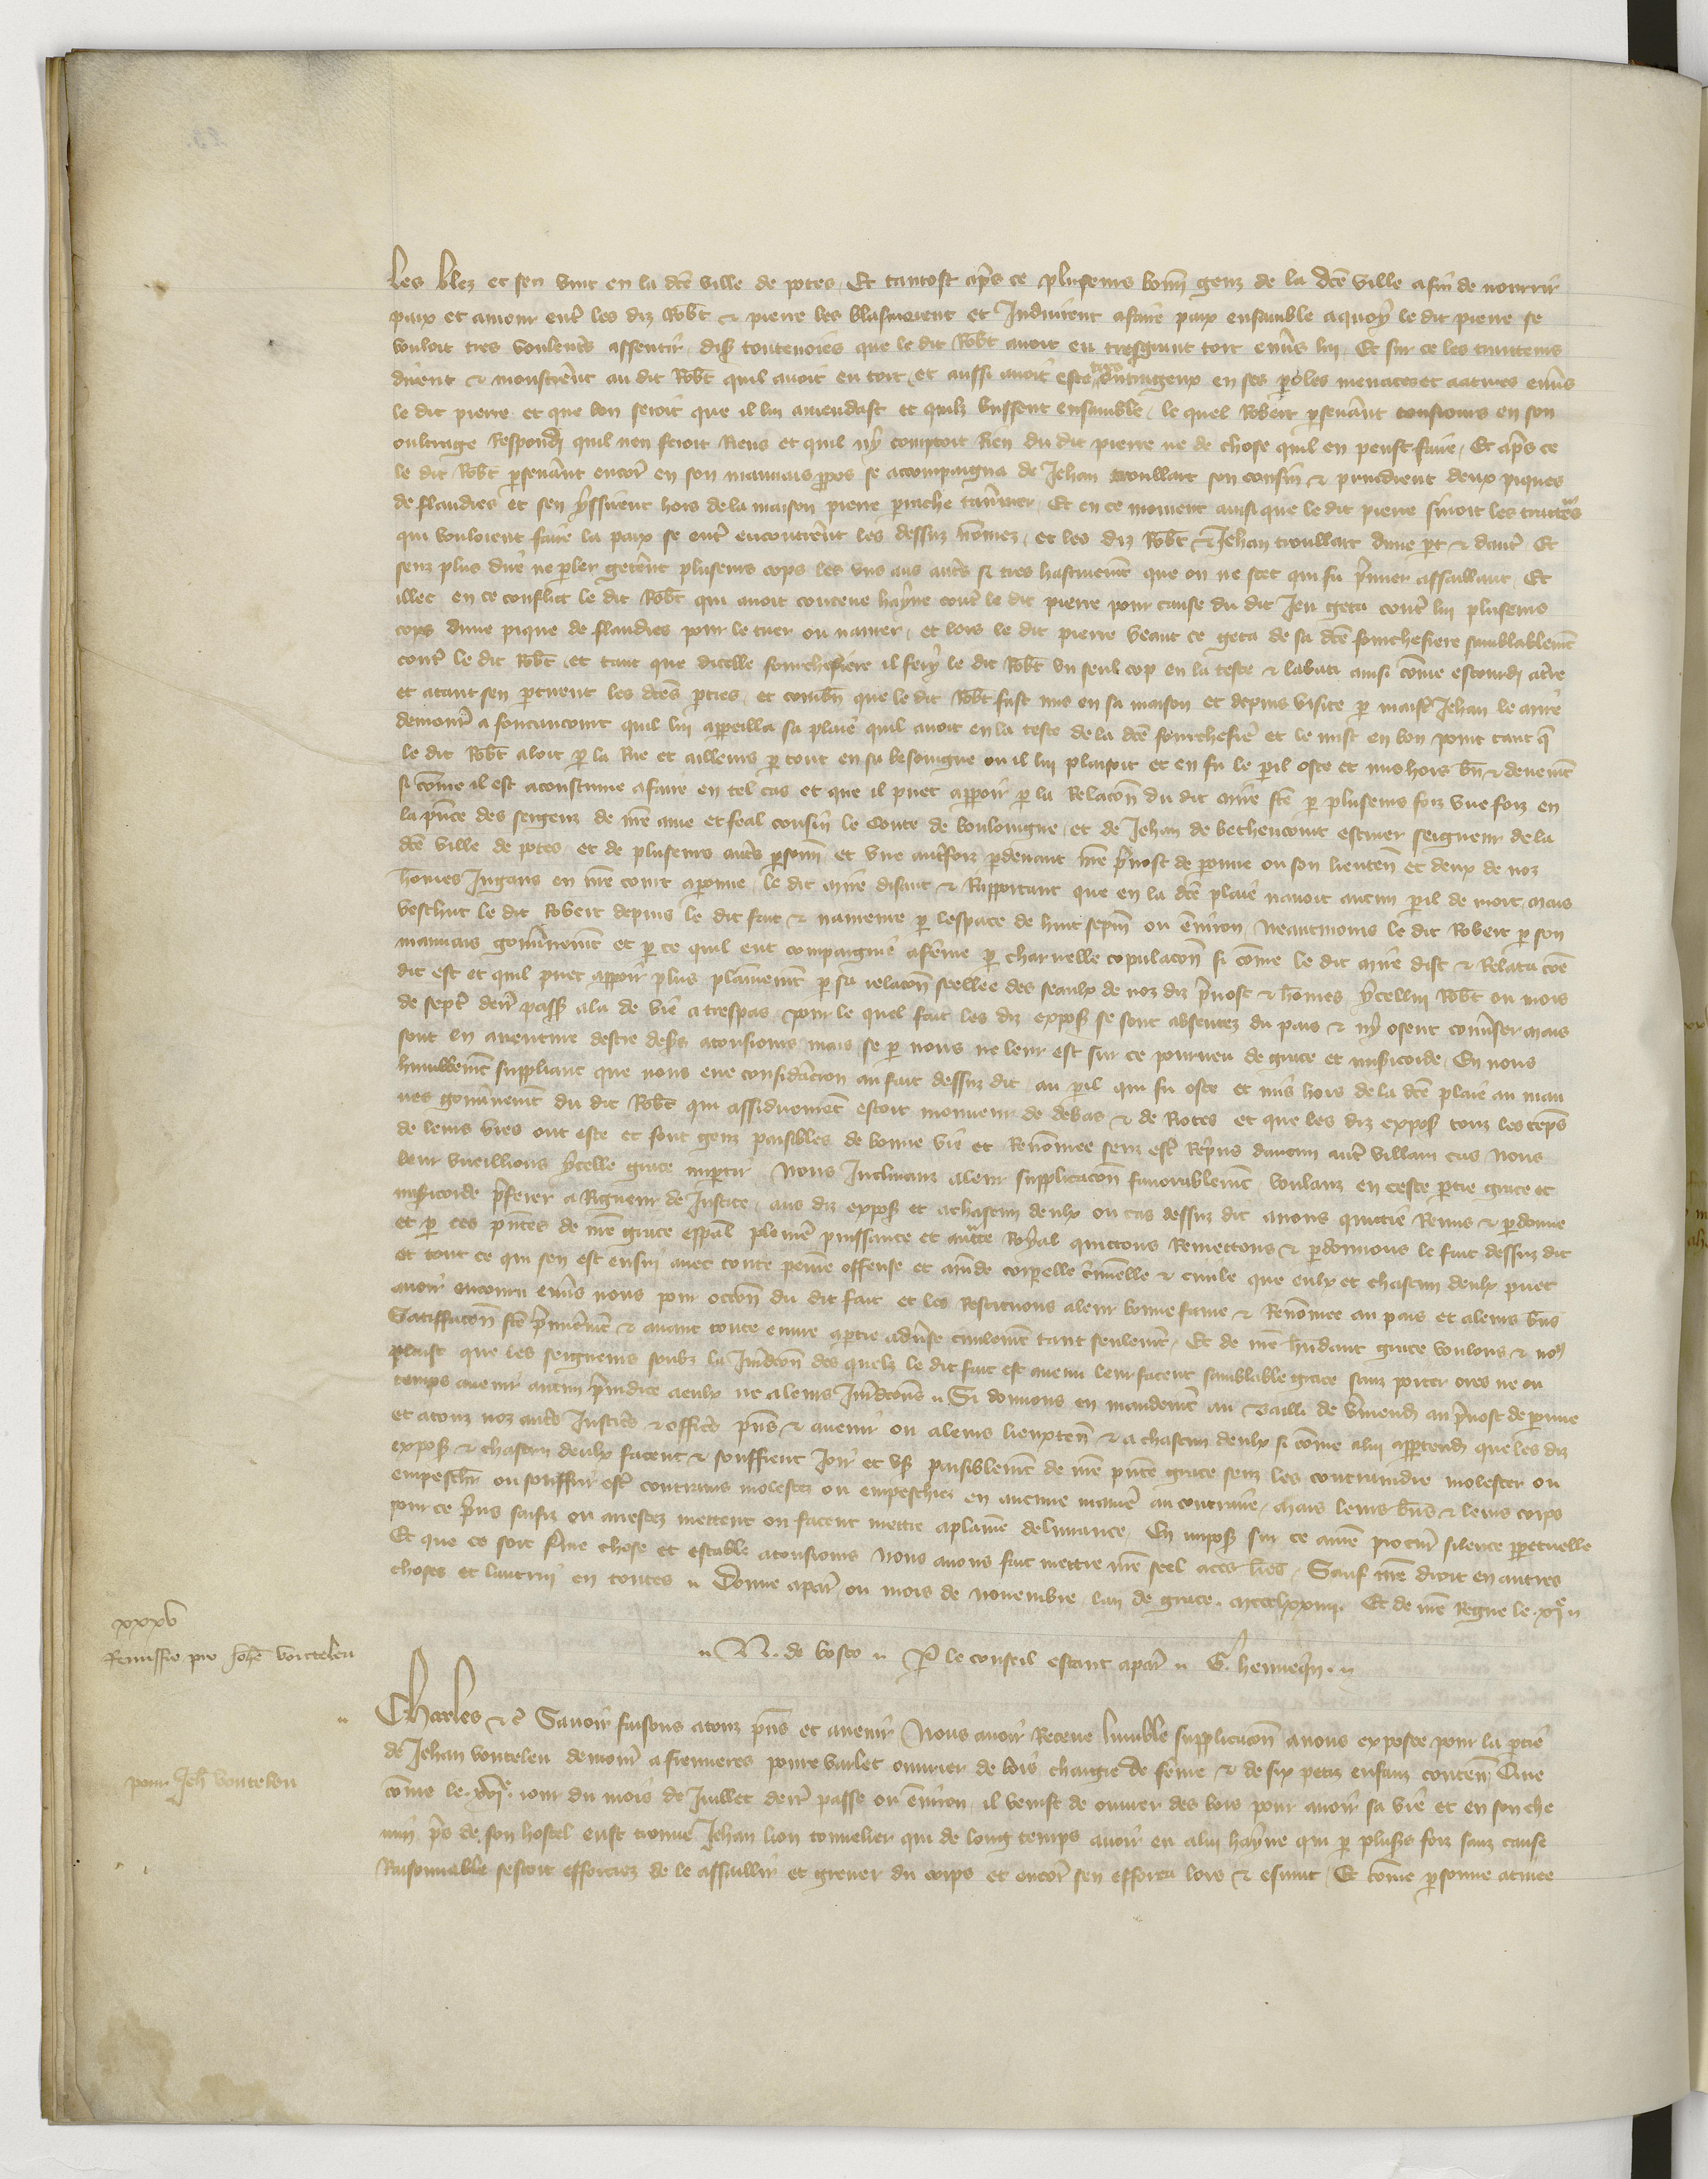 les blez et sen vint en la dce ville de potes Et tantost apres ce pluseurs bonn genz de la dce ville afin de nourrir
paix et amour entre les diz Robt & pierre les blasmerent et Induirent afaire paix ensamble aquoy le dit pierre se
vouloit tres voulentrs assentir dist toutevoies que le dit Robt avoit eu tresgrant tort envers lui Et sur ce les traitteurs
dirent & monstrerent au dit Robt quil avoit eu tort et aussi avoit este tres outrageux en ses paroles menaces et aatines envers
le dit pierre et que bon seroit que il lui amendast et quilz bussent ensamble le quel Robert perseverant tousiours en son
oultrage Respondi quil nen feroit Riens et quil ny comptoit Rien du dit pierre ne de chose quil en peust faire Et apres ce
le dit Robt perseverant encore en son mauvais propos se accompaigna de Jehan troullart son cousin & prindrent deux piques
de flandres et sen yssirent hors de la maison pierre tavernier Et en ce moment ainsi que le dit pierre suivoit les traitteurs
qui vouloient faire la paix se entre encontrerent les dessuz nommez et les diz Robt & Jehan troullart dune part & dautre Et
senz plus dire ne parler geterent pluseurs cops les uns aus autres si tres hastivement que on ne scet qui fu premier assaillant Et
illec en ce conflict le dit Robt qui avoit conceue hayne contre le dit pierre pour cause du dit Jeu geta contre lui pluseurs
cops dune pique de flandres pour le tuer ou navrer et lors le dit pierre veant ce geta de sa dce fourchefiere samblablement
contre le dit Robt et tant que dicelle fourchefiere il fery le dit Robt un seul cop en la teste & labati ainsi come estourdi a terre
et atant sen partirent les dces parties et combn que le dit Robt fust mis en sa maison et depuis visite par maistre Jehan le mire
demourant a foucaucourt quil lui appeilla sa plaie quil avoit en la teste de la dce fourchefiere et le mist en bon point tant que
le dit Robt aloit par la Rue et ailleurs par tout en sa besoingne ou il lui plaisoit et en fu le peril oste et mis hors bn & deuement
si come il est acoustume afaire en tel cas et que il puet apparoir par la Relacon du dit mire fce par pluseurs foiz une foiz en
la pnce des sergenz de nre ame et feal cousin le Conte de bouloingne et de Jehan de bethencourt escuier seigneur de la
dce ville de potes et de pluseurs autres personn et une autrefoiz pardevant nre prevost de peronne ou son lieuten et deux de noz
homes Jugans en nre court aperonne le dit mire disant & Rapportant que en la dce plaie navoit aucun peril de mort mais
vesquit le dit Robert depuis le dit fait & navreure par lespace de huit sepm ou environ Neantmoins le dit Robert par son
mauvais gouvernement et par ce quil eut compaignie afeme par charnelle copulacon si come le dit mire dist & Relata come
dit est et quil puet apparoir plus plainement par sa relacon seellee des seaulx de noz diz prevost & homes ycellui Robt ou mois
de septe derr passe ala de vie a trespas pour le quel fait les diz expos se sont absentez du pais & ny osent converser mais
sont en aventure destre desers atousiours mais se par nous ne leur est sur ce pourveu de grace et misericorde En nous
humblement suppliant que nous eue consideracion au fait dessuz dit au peril qui fu oste et mis hors de la dce plaie au mau
ves gouvernement du dit Robt qui assiduement estoit mouveur de debas & de Riotes et que les diz expos touz les temps
de leurs vies ont este et sont genz paisibles de bonne vie et Renommee senz estre Repris daucun autre villain cas Nous
leur vueillions ycelle grace impartir Nous Inclinanz aleur supplicacon favorablement voulanz en ceste partie grace et
misericorde preferer a Rigueur de Justice aus diz expos et achascun deulx ou cas dessuz dit avons quittie Remis & pardonne
et par ces pntes de nre grace especal pleniere puissance et auttte Royal quittons Remettons & pardonnons le fait dessuz dit
et tout ce qui sen est ensui avec toute peine offense et amde corporelle criminelle & civile que eulx et chascun deulx puet
avoir encouru envers nous pour occon du dit fait et les Restituons aleur bonne fame & Renommee au pais et aleurs bns
Satisfacon fce premierement & avant toute euvre apartie adverse civilement tant seulement Et de nre habundant grace voulons & nous
plaist que les seigneurs soubz la Jurdicon des quelz le dit fait est avenu leur facent samblable grace sanz porter ores ne ou
temps avenir aucun preiudice aeulx ne aleurs Jurdicons Si donnons en mandement au bailli de vermend au prevost de peronne
et atouz noz autres Justices & offices pns & avenir ou aleurs lieuxten & a chascun deulx si come alui appartendra que les diz
expos & chascun deulx facent & seuffrent Joir et user paisiblement de nre pnte grace senz les contraindre molester ou
empeschier ou souffrir estre contrains molestez ou empeschiez en aucune maniere au contraire Mais leurs bns & leurs corps
pour ce pris saisiz ou arrestez mettent ou facent mettre aplaine delivrance En impos sur ce anre procur silence perpetuelle
Et que ce soit ferme chose et estable atousiours Nous avons fait mettre nre seel aces lres Sauf nre droit en autres
choses et lautrui en toutes Donne apar ou mois de novembre lan de grace mccclxxiiii Et de nre Regne le xje
N. de bosco Par le conseil estant apar G. hennequin
xxxv
Remissio pro Johe vouteleu
Charles &c Savoir faisons atouz pns et avenir Nous avoir Receue lumble supplicacon anous exposee pour la partie
de Jehan vouteleu demour a fremieres povre varlet ouvrier de bois chargie de feme & de six petiz enfanz conten Que
pour Jeh voutelou
come le xvje jour du mois de Juillet derr passe ou environ il venist de ouvrer des bois pour avoir sa vie et en son che
min pres de son hostel eust trouve Jehan lion tonnelier qui de long temps avoit eu alui hayne qui par plusrs foiz sanz cause
Raisonnable sestoit efforciez de le assaillir et grever du corps et encor sen efforca lors & esmut Et come personne atainte